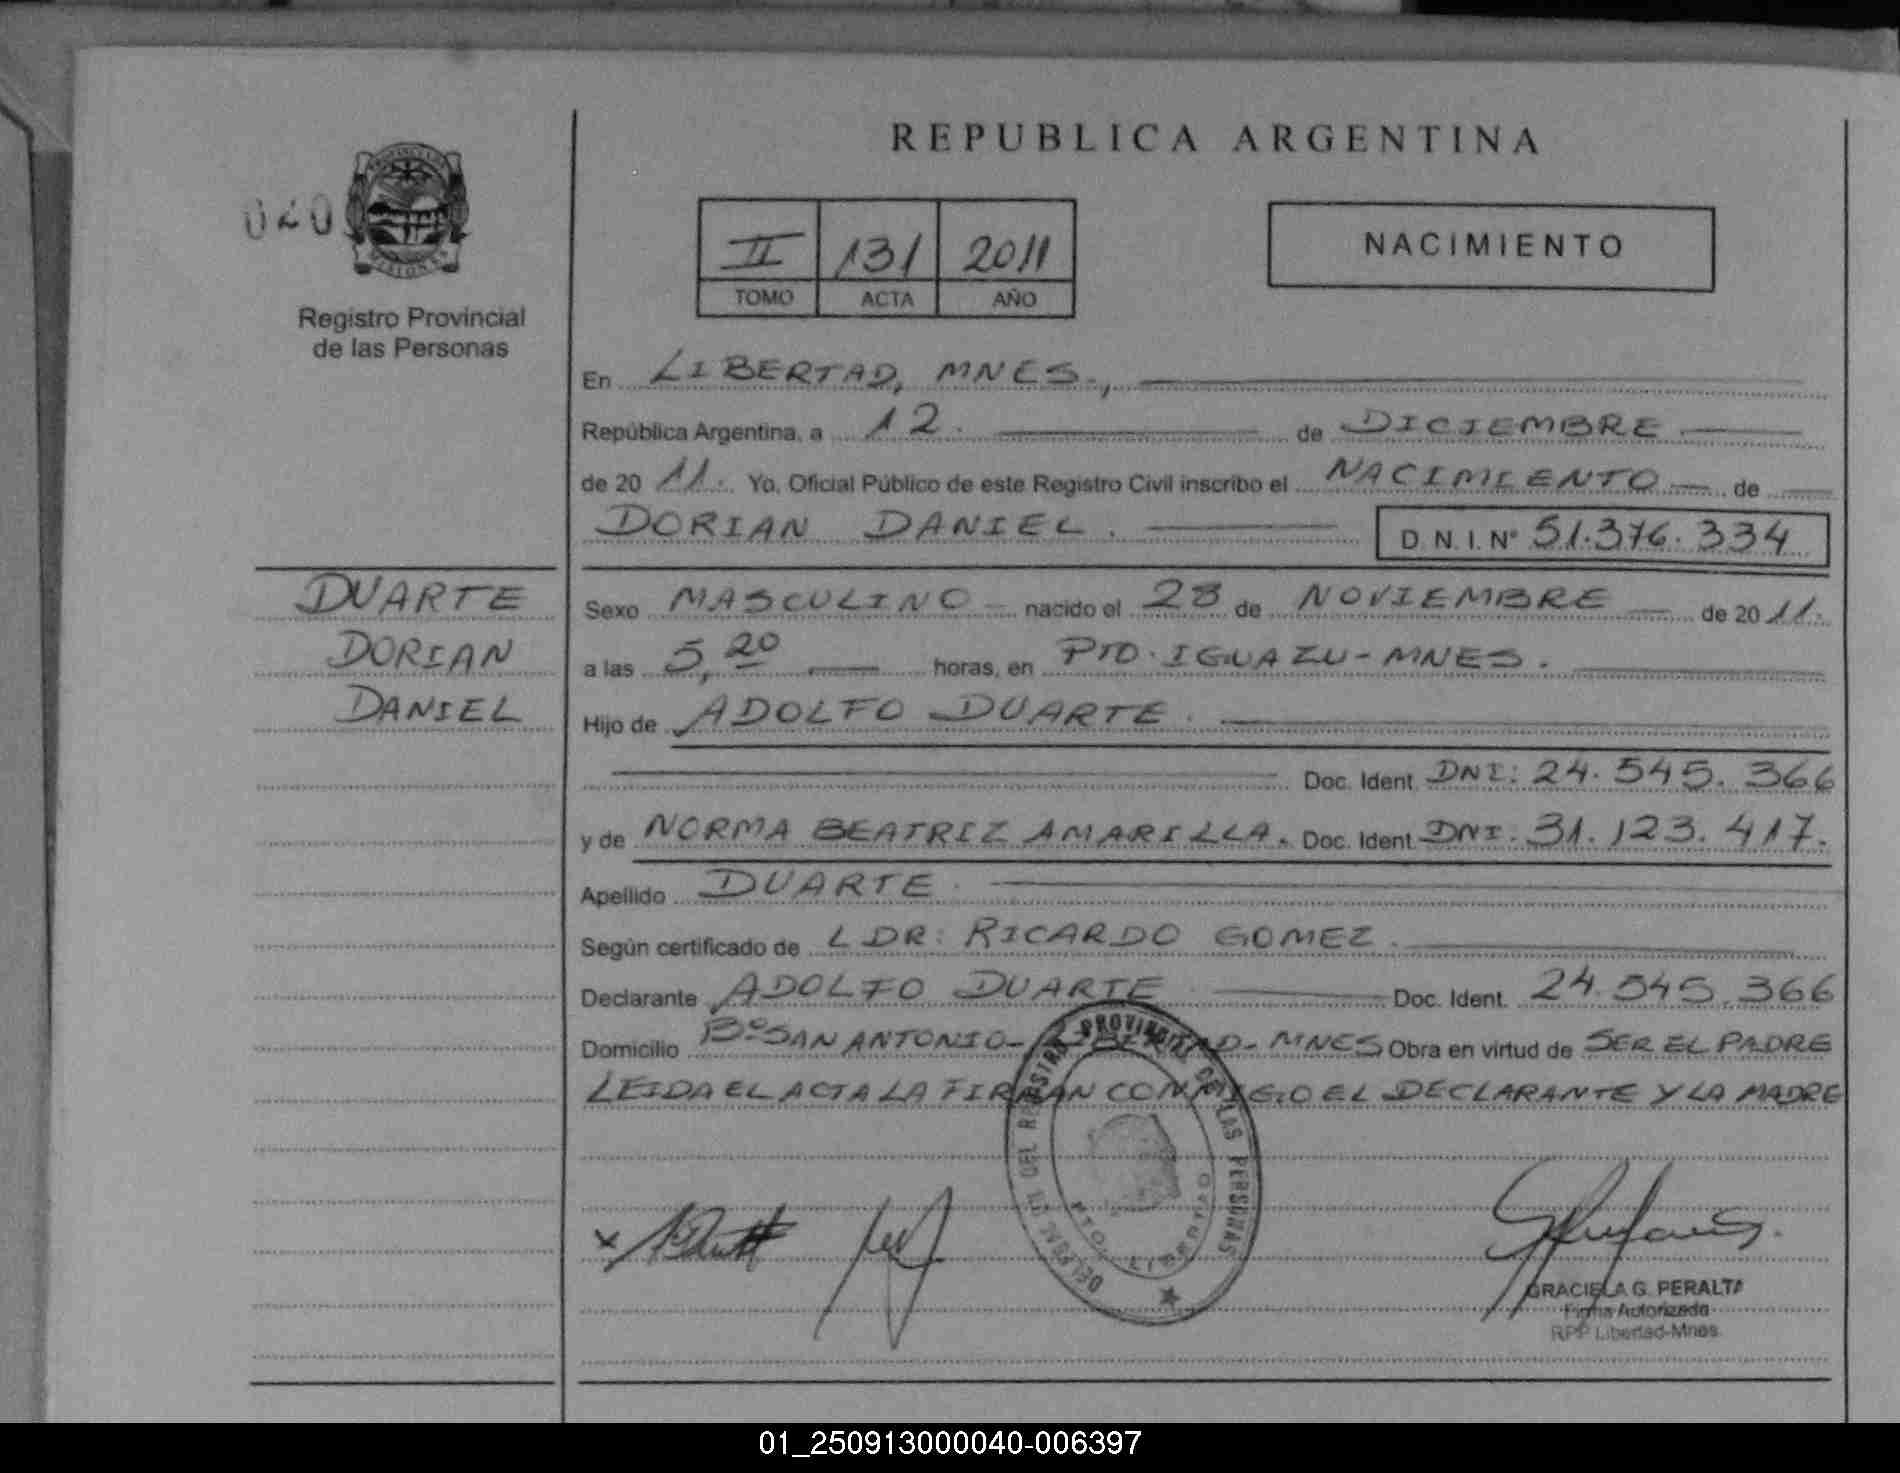 REPUBLICA ARGENTINA
020
PROVINCIA DE MISIONES
Registro Provincial
de las Personas
II 131 2011
TOMO ACTA AÑO
NACIMIENTO
En LIBERTAD, MNES.,
República Argentina, a 12. de DICIEMBRE
de 2011. Yo, Oficial Público de este Registro Civil inscribo el NACIMIENTO de
DORIAN DANIEL. D.N.I. Nº 51.376.334
DUARTE
DORIAN
DANIEL
Sexo MASCULINO nacido el 28 de NOVIEMBRE de 2011.
a las 5,20 horas, en PTO. IGUAZU-MNES.
Hijo de ADOLFO DUARTE.
Doc. Ident. DNI: 24.545.366
y de NORMA BEATRIZ AMARILLA. Doc. Ident. DNI: 31.123.417.
Apellido DUARTE.
Según certificado de LDR: RICARDO GOMEZ.
Declarante ADOLFO DUARTE Doc. Ident. 24.545.366
Domicilio Bº SAN ANTONIO-LIBERTAD-MNES Obra en virtud de SER EL PADRE
LEIDA EL ACTA LA FIRMAN CONMIGO EL DECLARANTE Y LA MADRE
DEL REGISTRO PROVINCIAL DE LAS PERSONAS
PTO. LIBERTAD
GRACIELA G. PERALTA
Firma Autorizada
RPP Libertad-Mnes
01_250913000040-006397